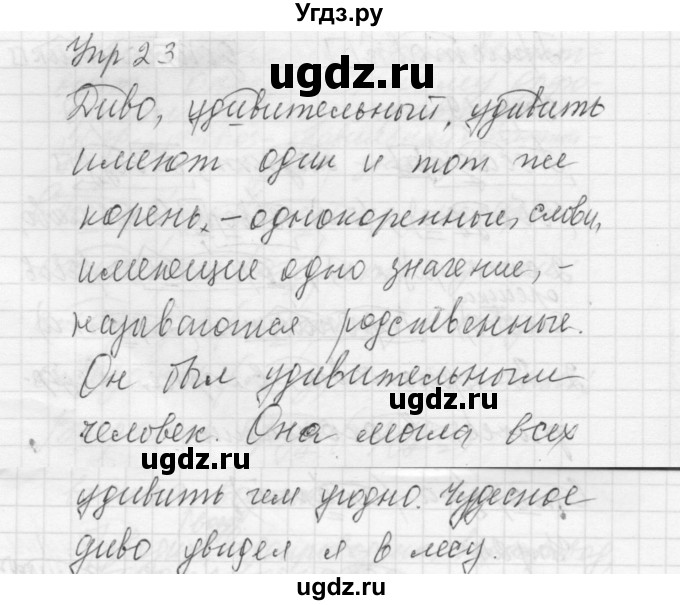 Угдз.ру
Упр 23
ugdz.ru
Диво, удивительный, удивить
имеют один и тот же
корень, – однокоренные, слови,
имеющие одно значение, –
называются родственные.
Он был удивительным
ugdz.ru
человек. Она могла всех
ugdz.ru
удивить чем угодно. Чудесное
диво увидел я в лесу.
ugdz.ru